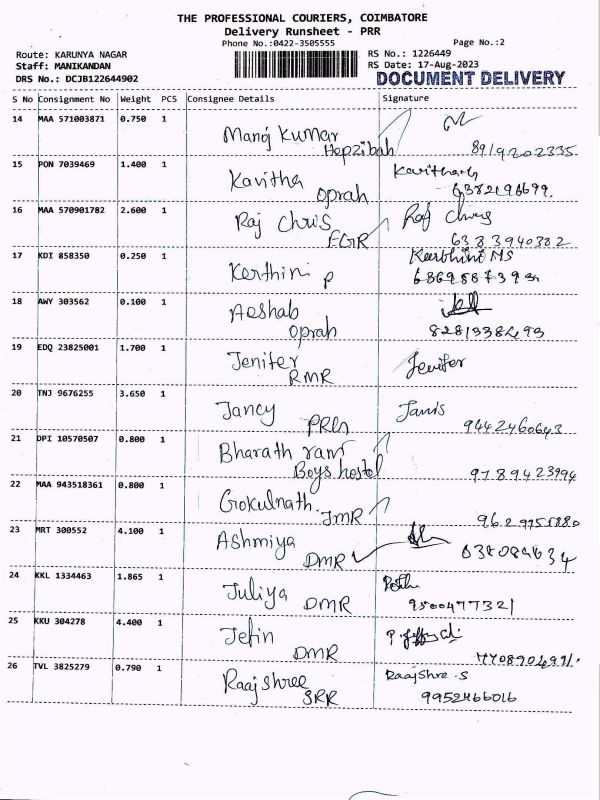 THE PROFESSIONAL COURIERS, COIMBATORE
Delivery Runsheet - PRR
Phone No.:0422-3505555
Page No.:2
Route: KARUNYA NAGAR
RS No.: 1226449
Staff: MANIKANDAN
RS Date: 17-Aug-2023
DRS No.: DCJB122644902
DOCUMENT DELIVERY
S No Consignment No Weight PCS Consignee Details Signature
14 MAA 571003871 0.750 1
Manoj Kumar
Hepzibah 8919202335
15 PON 7039469 1.400 1
Kavitha
Oprah 6382196699
16 MAA 570901782 2.600 1
Raj Chris Raj Chris
EGR 6383940382
17 KDI 858350 0.250 1
Kerthini P
18 AWY 303562 0.100 1
Aeshab
Oprah 8281338493
19 EDQ 23825001 1.700 1
Jenifer Jenifer
RMR
20 TNJ 9676255 3.650 1
Jancy Janis
9442460643
21 DPI 10570507 0.800 1
Bharath ram
Boys hostel 9789423994
22 MAA 943518361 0.800 1
Gokulnath
JMR
23 MRT 300552 4.100 1
Ashmiya
DMR
24 KKL 1334463 1.865 1
Juliya
DMR 9500477321
25 KKU 304278 4.400 1
Jefin
DMR
26 TVL 3825279 0.790 1
Raajshree RaajShree .S
SRR 9952466016